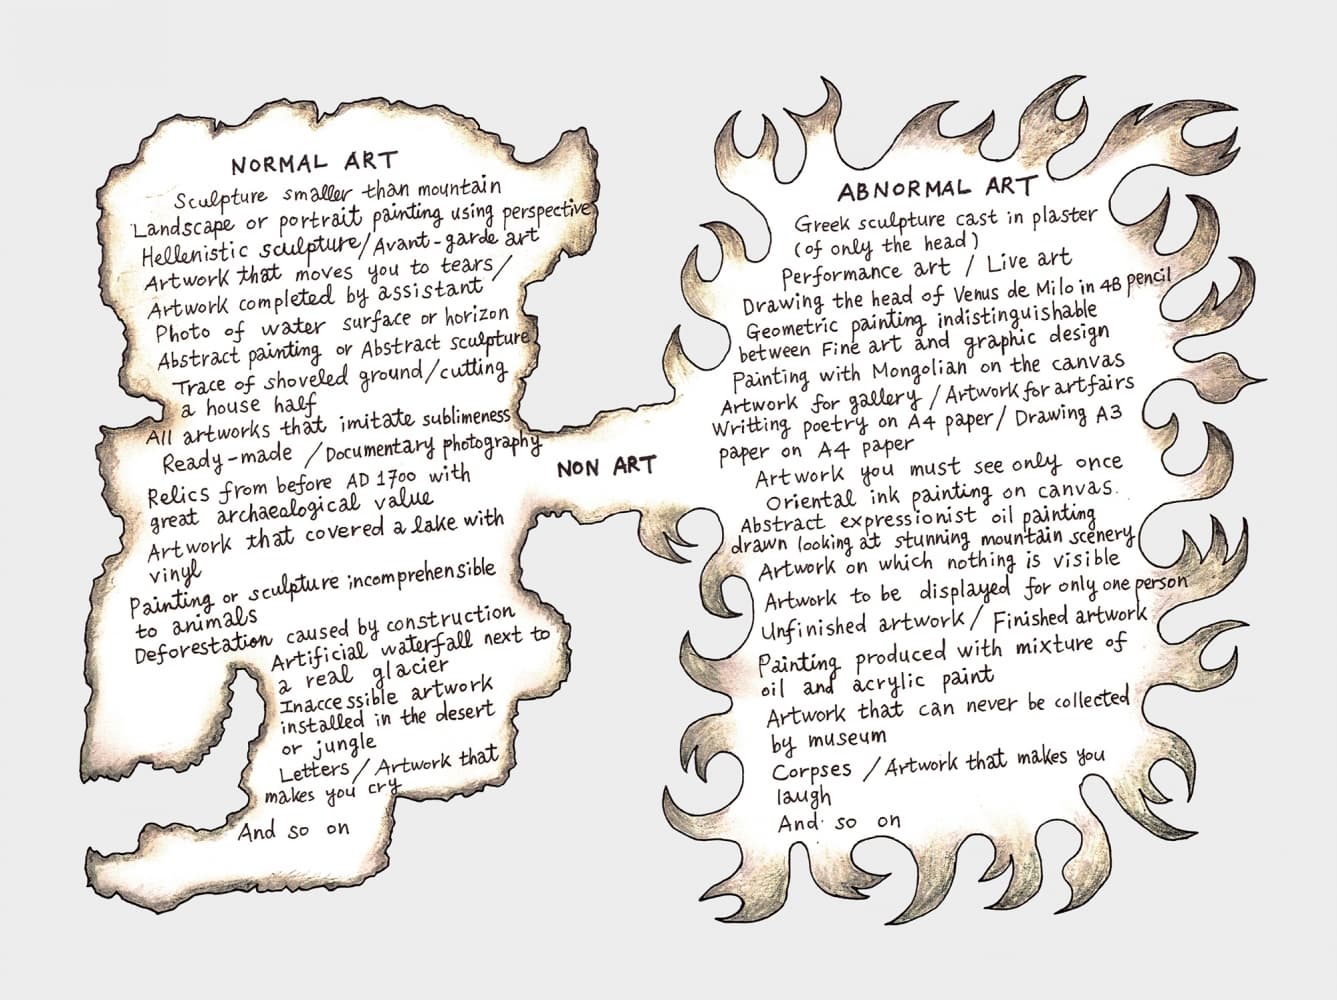 NORMAL ART
Sculpture smaller than mountain
Landscape or portrait painting using perspective
Hellenistic sculpture/Avant-garde art
Artwork that moves you to tears/
Artwork completed by assistant
Photo of water surface or horizon
Abstract painting or Abstract sculpture
Trace of shoveled ground/cutting
a house half
All artworks that imitate sublimeness
Ready-made /Documentary photography
Relics from before AD 1700 with
great archaeological value
Artwork that covered a lake with
vinyl
Painting or sculpture incomprehensible
to animals
Deforestation caused by construction
Artificial waterfall next to
a real glacier
Inaccessible artwork
installed in the desert
or jungle
Letters/Artwork that
makes you cry
And so on
NON ART
ABNORMAL ART
Greek sculpture cast in plaster
(of only the head)
Performance art / Live art
Drawing the head of Venus de Milo in 4B pencil
Geometric painting indistinguishable
between Fine art and graphic design
Painting with Mongolian on the canvas
Artwork for gallery /Artwork for artfairs
Writting poetry on A4 paper/ Drawing A3
paper on A4 paper
Artwork you must see only once
Oriental ink painting on canvas.
Abstract expressionist oil painting
drawn looking at stunning mountain scenery
Artwork on which nothing is visible
Artwork to be displayed for only one person
Unfinished artwork/ Finished artwork
Painting produced with mixture of
oil and acrylic paint
Artwork that can never be collected
by museum
Corpses /Artwork that makes you
laugh
And so on